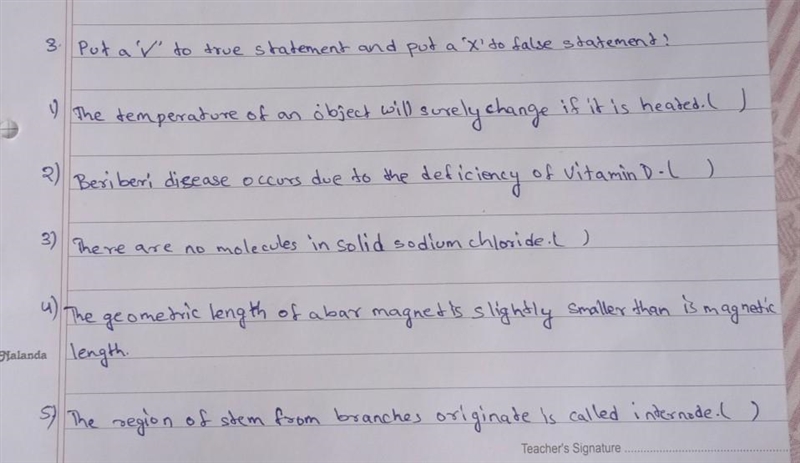 3. Put a '√' to true statement and put a 'x' to false statement:
1) The temperature of an object will surely change if it is heated. ( )
2) Beriberi disease occurs due to the deficiency of Vitamin D. ( )
3) There are no molecules in solid sodium chloride. ( )
4) The geometric length of a bar magnet is slightly smaller than is magnetic
Nalanda length.
5) The region of stem from branches originate is called internode. ( )
Teacher's Signature